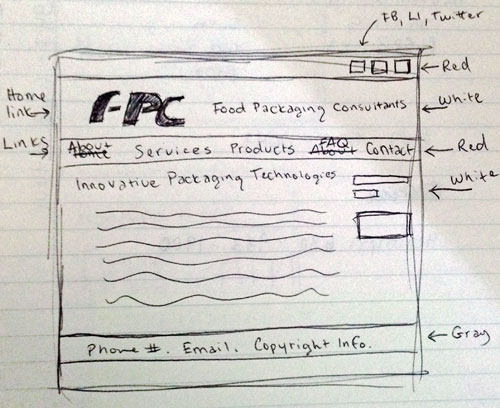 FB, LI, Twitter
Red
Home
link
FPC
Food Packaging Consultants
White
Links
About Services Products FAQ Contact
Home About
Red
Innovative Packaging Technologies
White
Gray
Phone #. Email. Copyright Info.